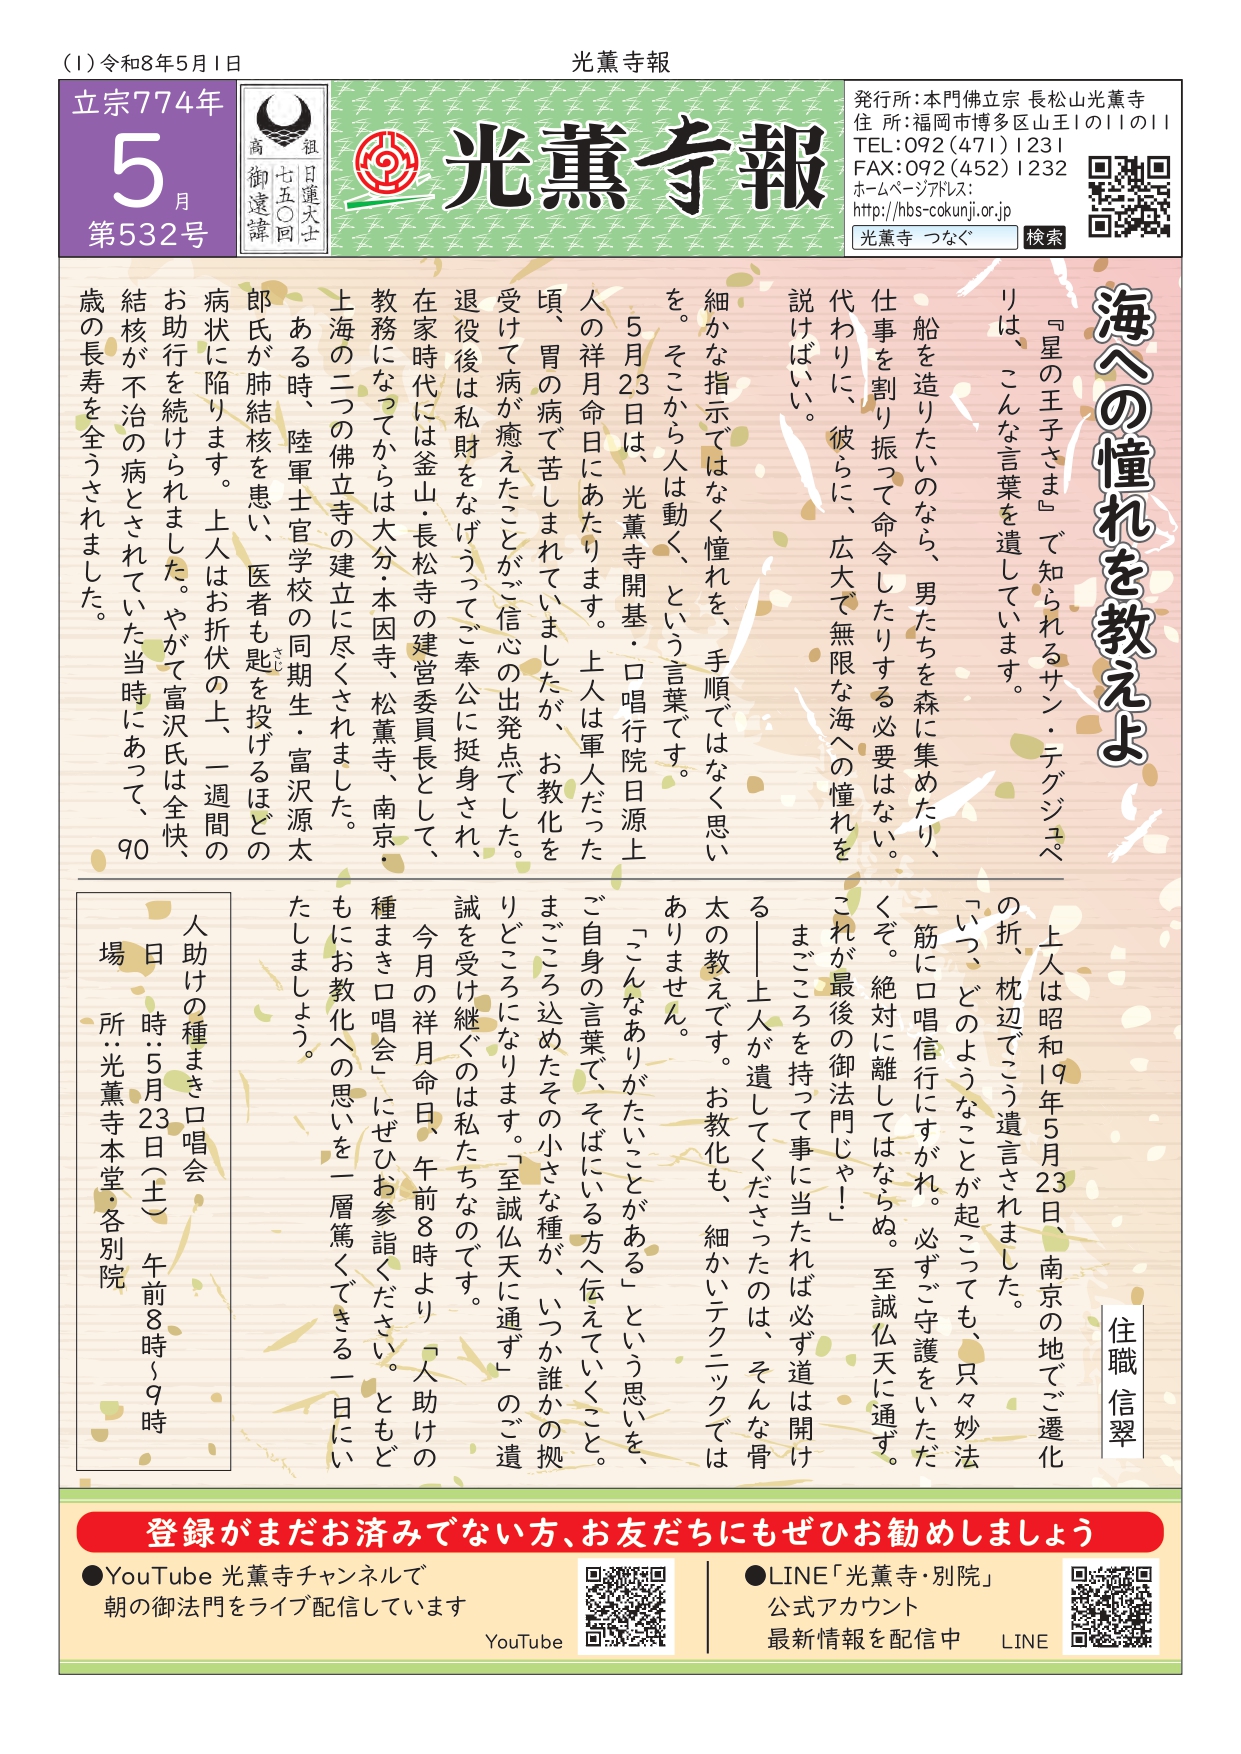 (1)令和8年5月1日
光薫寺報
立宗774年
5月
第532号
高祖
日蓮大士
七五〇回
御遠諱
光薫寺報
発行所:本門佛立宗 長松山光薫寺
住 所:福岡市博多区山王1の11の11
TEL:092(471)1231
FAX:092(452)1232
ホームページアドレス:
http://hbs-cokunji.or.jp
光薫寺 つなぐ 検索
海への憧れを教えよ
住職 信翠
『星の王子さま』で知られるサン・テグジュペ
リは、こんな言葉を遺しています。
船を造りたいのなら、男たちを森に集めたり、
仕事を割り振って命令したりする必要はない。
代わりに、彼らに、広大で無限な海への憧れを
説けばいい。
細かな指示ではなく憧れを、手順ではなく思い
を。そこから人は動く、という言葉です。
5月23日は、光薫寺開基・口唱行院日源上
人の祥月命日にあたります。上人は軍人だった
頃、胃の病で苦しまれていましたが、お教化を
受けて病が癒えたことがご信心の出発点でした。
退役後は私財をなげうってご奉公に挺身され、
在家時代には釜山・長松寺の建営委員長として、
教務になってからは大分・本因寺、松薫寺、南京・
上海の二つの佛立寺の建立に尽くされました。
ある時、陸軍士官学校の同期生・富沢源太
郎氏が肺結核を患い、医者も匙さじを投げるほどの
病状に陥ります。上人はお折伏の上、一週間の
お助行を続けられました。やがて富沢氏は全快、
結核が不治の病とされていた当時にあって、90
歳の長寿を全うされました。
上人は昭和19年5月23日、南京の地でご遷化
の折、枕辺でこう遺言されました。
「いつ、どのようなことが起こっても、只々妙法
一筋に口唱信行にすがれ。必ずご守護をいただ
くぞ。絶対に離してはならぬ。至誠仏天に通ず。
これが最後の御法門じゃ!」
まごころを持って事に当たれば必ず道は開け
る――上人が遺してくださったのは、そんな骨
太の教えです。お教化も、細かいテクニックでは
ありません。
「こんなありがたいことがある」という思いを、
ご自身の言葉で、そばにいる方へ伝えていくこと。
まごころ込めたその小さな種が、いつか誰かの拠
りどころになります。「至誠仏天に通ず」のご遺
誡を受け継ぐのは私たちなのです。
今月の祥月命日、午前8時より「人助けの
種まき口唱会」にぜひお参詣ください。ともど
もにお教化への思いを一層篤くできる一日にい
たしましょう。
人助けの種まき口唱会
日 時:5月23日(土) 午前8時~9時
場 所:光薫寺本堂・各別院
登録がまだお済みでない方、お友だちにもぜひお勧めしましょう
●YouTube 光薫寺チャンネルで
朝の御法門をライブ配信しています
YouTube
●LINE「光薫寺・別院」
公式アカウント
最新情報を配信中
LINE